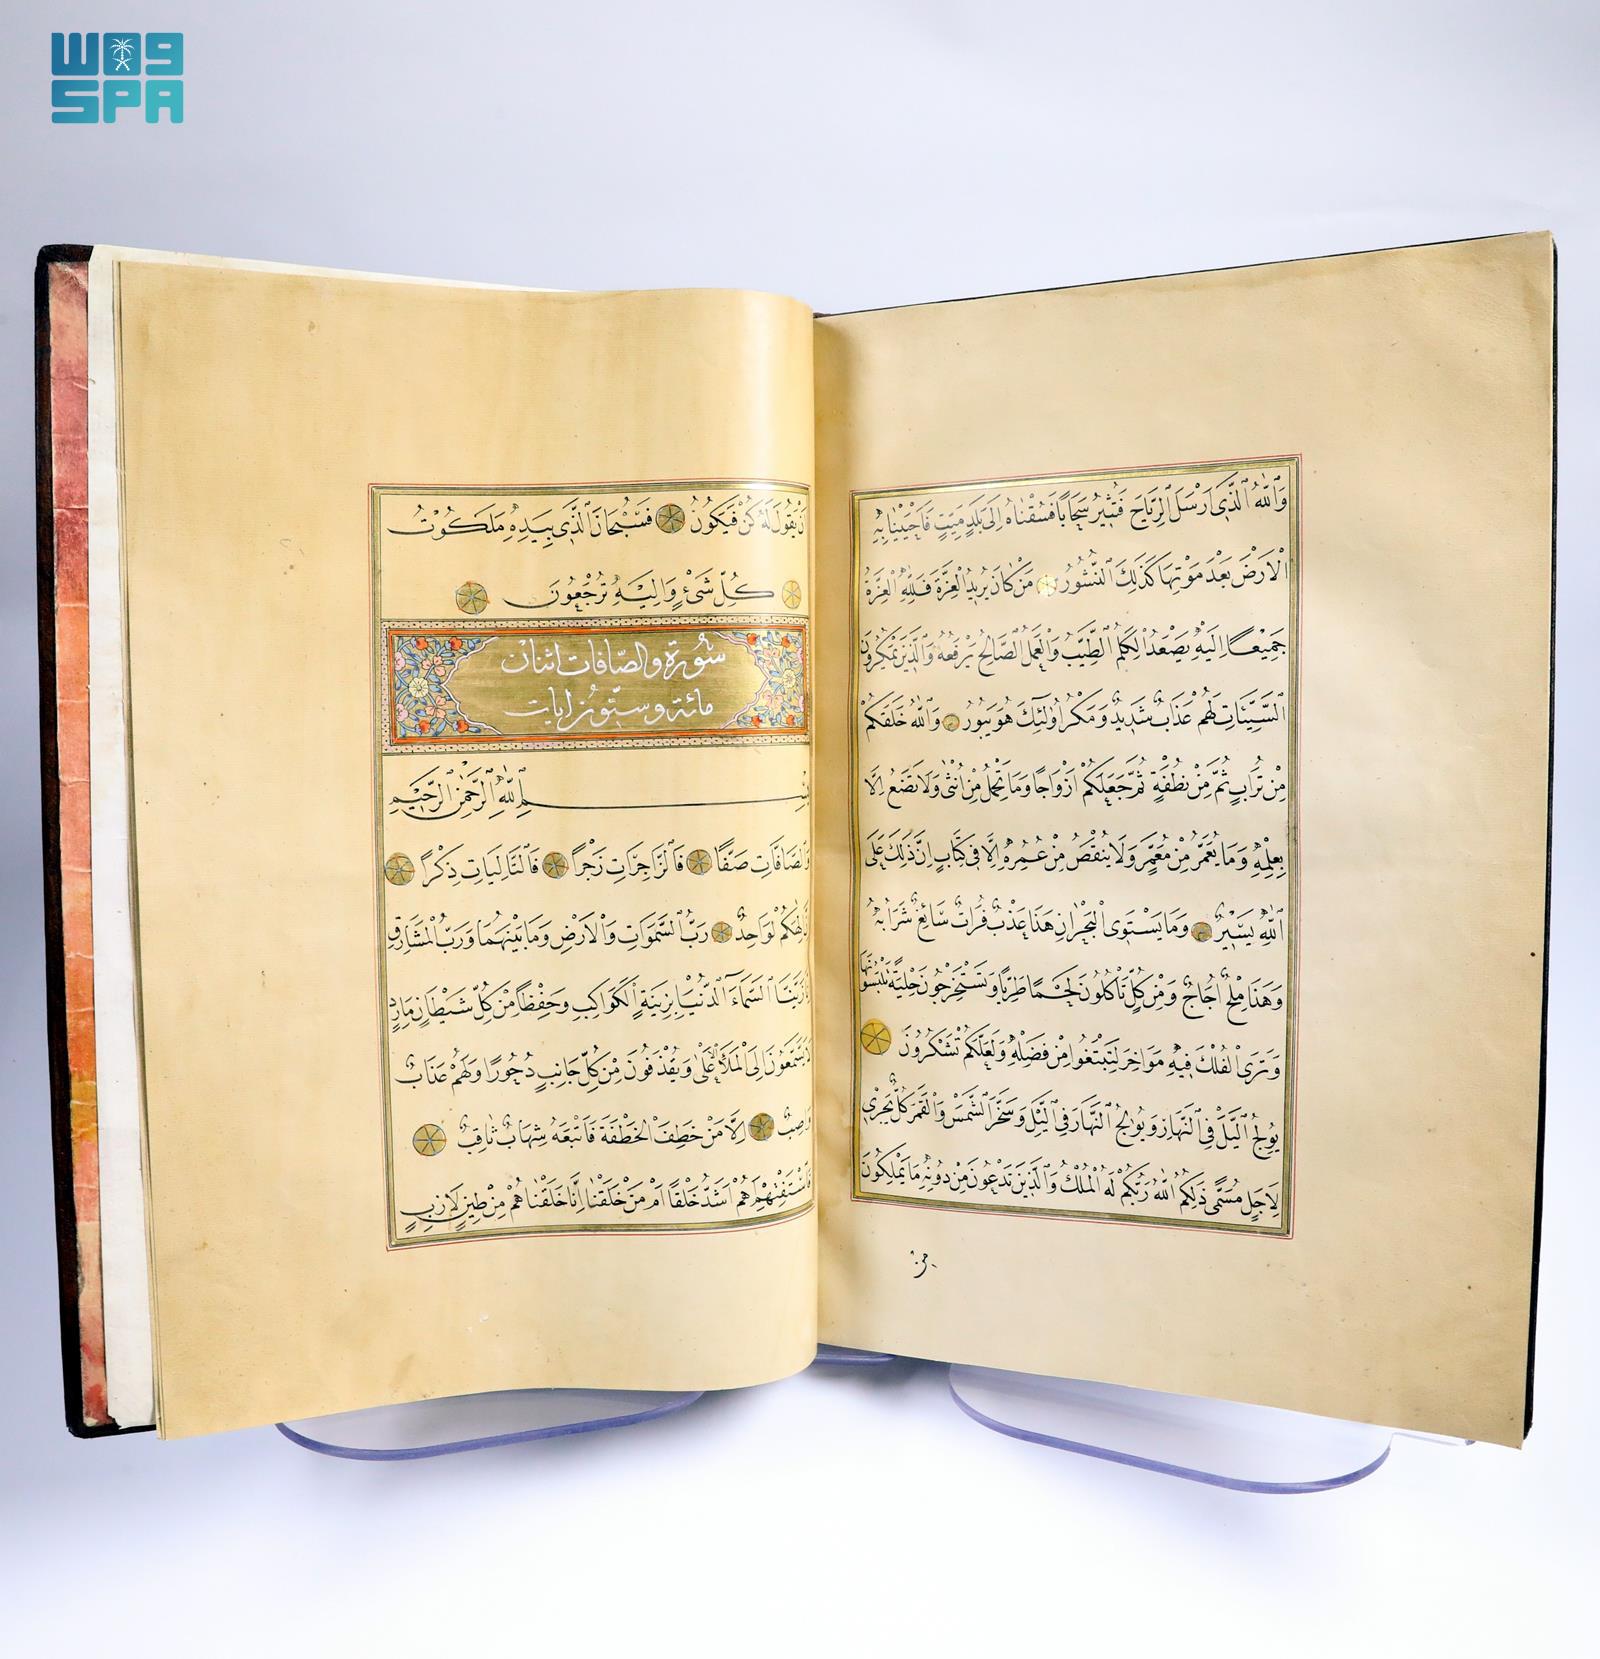 واس
SPA
وَاللّٰهُ الَّذٖى اَرْسَلَ الرِّيَاحَ فَتُثٖيرُ سَحَابًا فَسُقْنَاهُ اِلٰى بَلَدٍ مَيِّتٍ فَاَحْيَيْنَا بِهِ
الْاَرْضَ بَعْدَ مَوْتِهَا كَذٰلِكَ النُّشُورُ مَنْ كَانَ يُرٖيدُ الْعِزَّةَ فَلِلّٰهِ الْعِزَّةُ
جَمٖيعًا اِلَيْهِ يَصْعَدُ الْكَلِمُ الطَّيِّبُ وَالْعَمَلُ الصَّالِحُ يَرْفَعُهُ وَالَّذٖينَ يَمْكُرُونَ
السَّيِّئَاتِ لَهُمْ عَذَابٌ شَدٖيدٌ وَمَكْرُ اُولٰئِكَ هُوَ يَبُورُ وَاللّٰهُ خَلَقَكُمْ
مِنْ تُرَابٍ ثُمَّ مِنْ نُطْفَةٍ ثُمَّ جَعَلَكُمْ اَزْوَاجًا وَمَا تَحْمِلُ مِنْ اُنْثٰى وَلَا تَضَعُ اِلَّا
بِعِلْمِهٖ وَمَا يُعَمَّرُ مِنْ مُعَمَّرٍ وَلَا يُنْقَصُ مِنْ عُمُرِهٖ اِلَّا فٖى كِتَابٍ اِنَّ ذٰلِكَ عَلَى
اللّٰهِ يَسٖيرٌ وَمَا يَسْتَوِى الْبَحْرَانِ هٰذَا عَذْبٌ فُرَاتٌ سَائِغٌ شَرَابُهُ
وَهٰذَا مِلْحٌ اُجَاجٌ وَمِنْ كُلٍّ تَاْكُلُونَ لَحْمًا طَرِيًّا وَتَسْتَخْرِجُونَ حِلْيَةً تَلْبَسُونَهَا
وَتَرَى الْفُلْكَ فٖيهِ مَوَاخِرَ لِتَبْتَغُوا مِنْ فَضْلِهٖ وَلَعَلَّكُمْ تَشْكُرُونَ
يُولِجُ الَّيْلَ فِى النَّهَارِ وَيُولِجُ النَّهَارَ فِى الَّيْلِ وَسَخَّرَ الشَّمْسَ وَالْقَمَرَ كُلٌّ يَجْرٖى
لِاَجَلٍ مُسَمًّى ذٰلِكُمُ اللّٰهُ رَبُّكُمْ لَهُ الْمُلْكُ وَالَّذٖينَ تَدْعُونَ مِنْ دُونِهٖ مَا يَمْلِكُونَ
مِنْ
نْ يَقُولَ لَهُ كُنْ فَيَكُونُ فَسُبْحَانَ الَّذٖى بِيَدِهٖ مَلَكُوتُ
كُلِّ شَىْءٍ وَاِلَيْهِ تُرْجَعُونَ
سورة والصافات اثنان
مائة وستون ايات
بِسْمِ اللّٰهِ الرَّحْمٰنِ الرَّحٖيمِ
وَالصَّافَّاتِ صَفًّا فَالزَّاجِرَاتِ زَجْرًا فَالتَّالِيَاتِ ذِكْرًا
اِلٰهَكُمْ لَوَاحِدٌ رَبُّ السَّمٰوَاتِ وَالْاَرْضِ وَمَا بَيْنَهُمَا وَرَبُّ الْمَشَارِقِ
زَيَّنَّا السَّمَاءَ الدُّنْيَا بِزٖينَةٍ الْكَوَاكِبِ وَحِفْظًا مِنْ كُلِّ شَيْطَانٍ مَارِدٍ
يَسَّمَّعُونَ اِلَى الْمَلَاِ الْاَعْلٰى وَيُقْذَفُونَ مِنْ كُلِّ جَانِبٍ دُحُورًا وَلَهُمْ عَذَابٌ
وَاصِبٌ اِلَّا مَنْ خَطِفَ الْخَطْفَةَ فَاَتْبَعَهُ شِهَابٌ ثَاقِبٌ
فَاسْتَفْتِهِمْ اَهُمْ اَشَدُّ خَلْقًا اَمْ مَنْ خَلَقْنَا اِنَّا خَلَقْنَاهُمْ مِنْ طٖينٍ لَازِبٍ